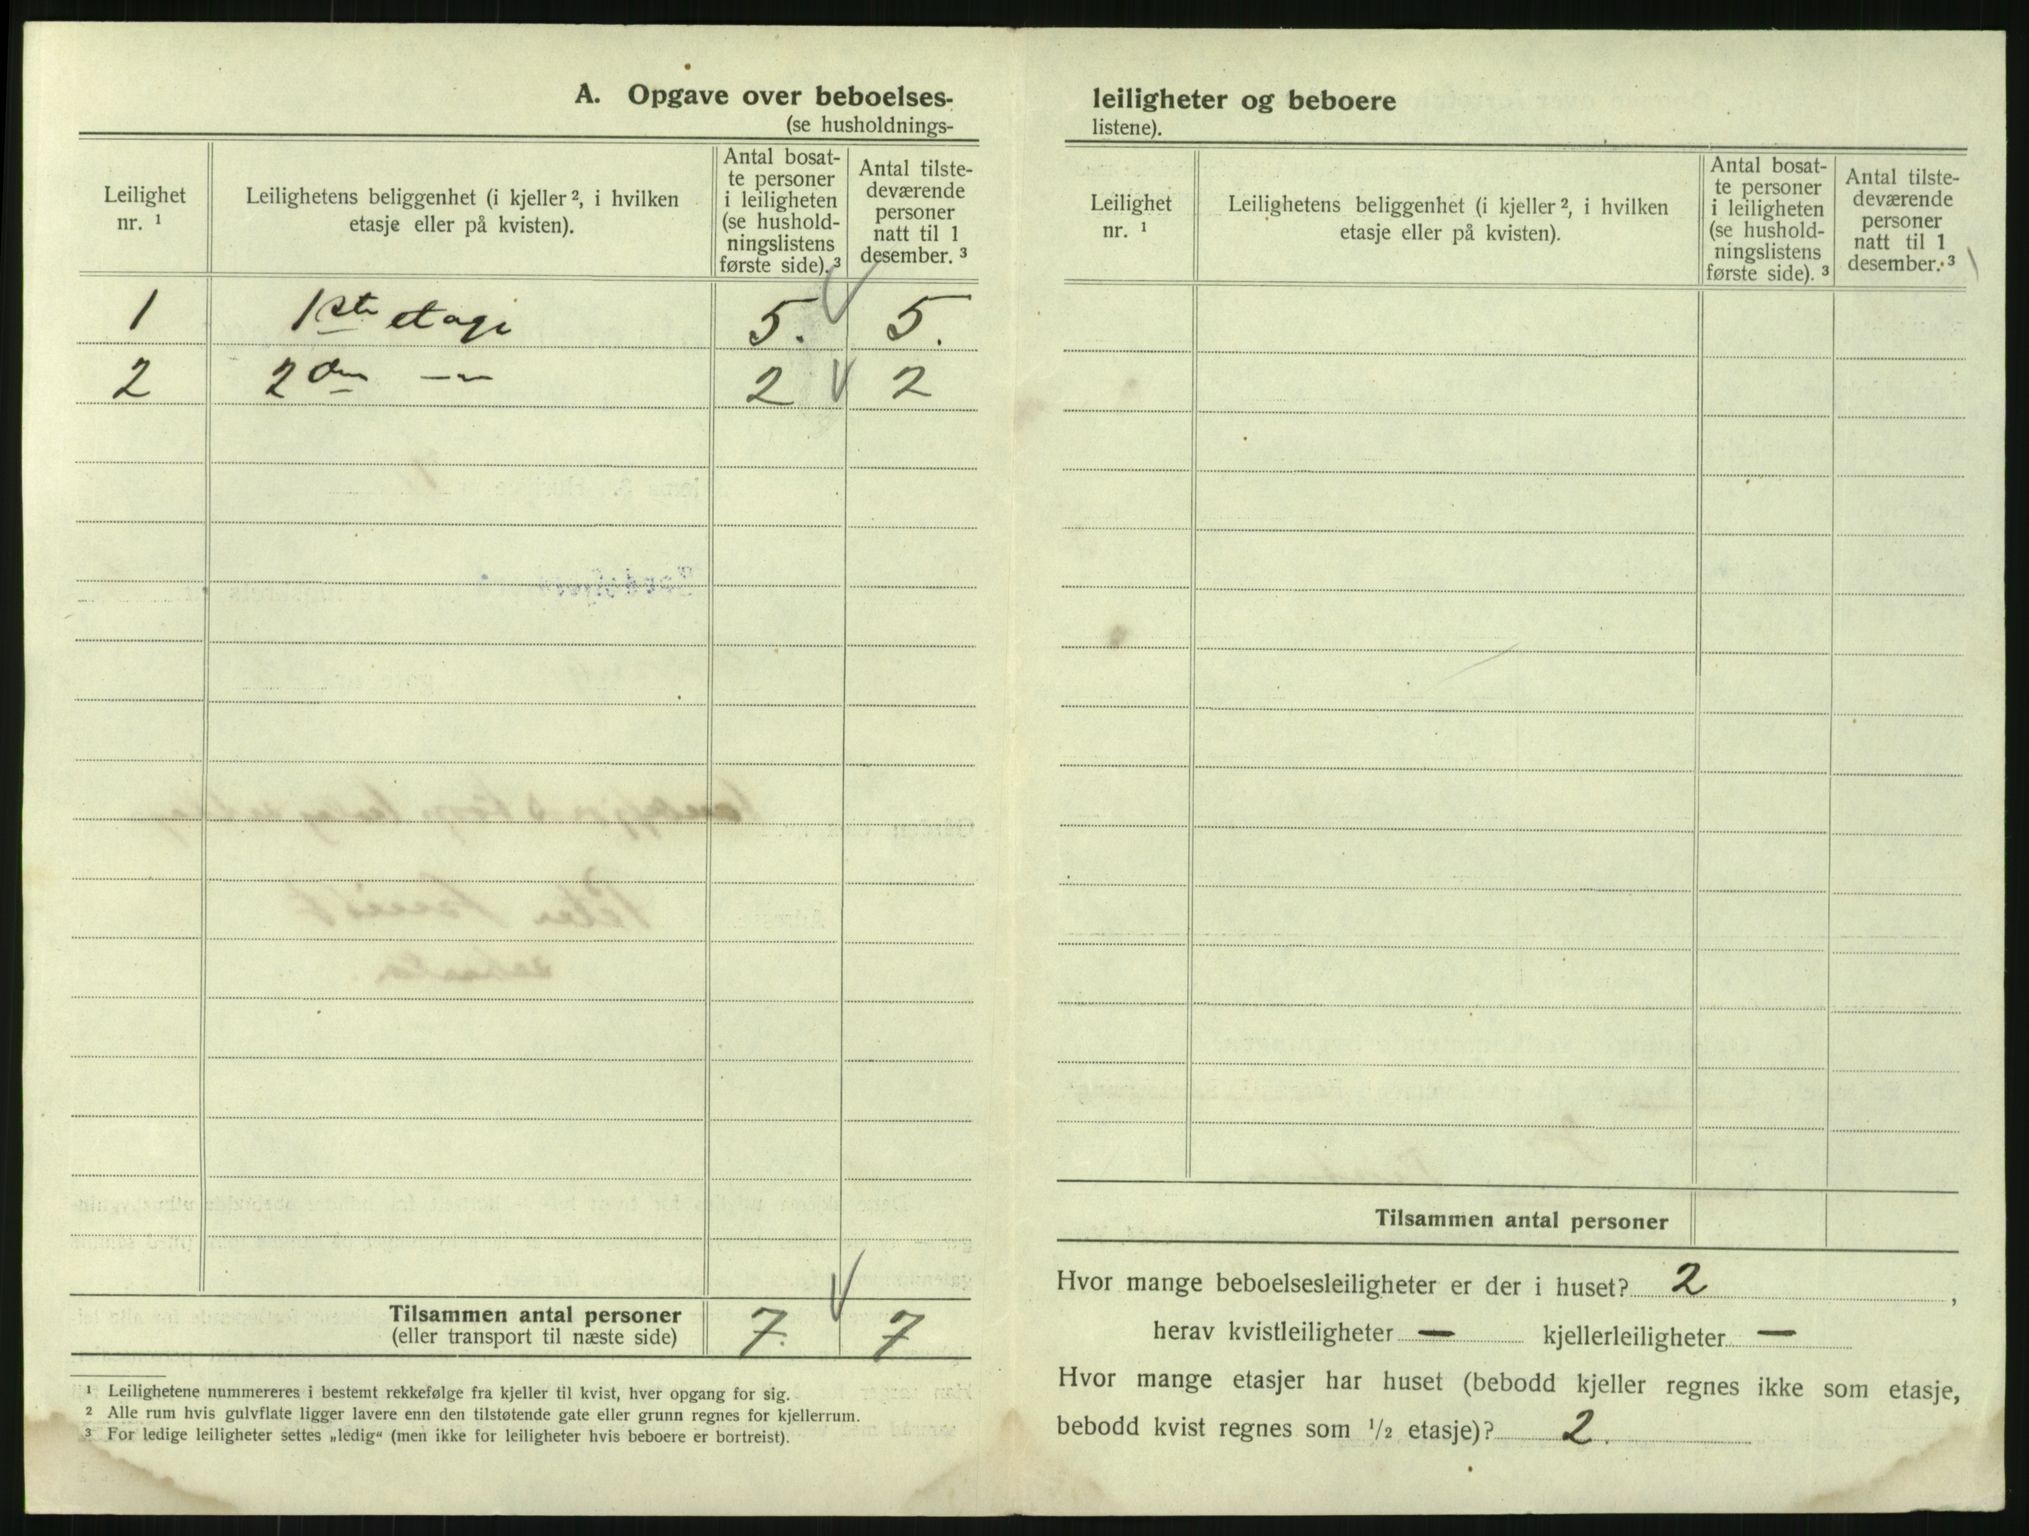 A. Opgave over beboelses-
(se husholdnings-
Leilighet nr. ¹
Leilighetens beliggenhet (i kjeller ², i hvilken etasje eller på kvisten).
Antal bosat-
te personer
i leiligheten
(se hushold-
ningslistens
første side). ³
Antal tilste-
deværende
personer
natt til 1
desember. ³
1 1ste etage 5. 5.
2 2den —„— 2 2
Tilsammen antal personer
(eller transport til næste side) 7. 7
¹ Leilighetene nummereres i bestemt rekkefølge fra kjeller til kvist, hver opgang for sig.
² Alle rum hvis gulvflate ligger lavere enn den tilstøtende gate eller grunn regnes for kjellerrum.
³ For ledige leiligheter settes „ledig“ (men ikke for leiligheter hvis beboere er bortreist).
leiligheter og beboere
listene).
Leilighet nr. ¹
Leilighetens beliggenhet (i kjeller ², i hvilken etasje eller på kvisten).
Antal bosat-
te personer
i leiligheten
(se hushold-
ningslistens
første side). ³
Antal tilste-
deværende
personer
natt til 1
desember. ³
Tilsammen antal personer
Hvor mange beboelsesleiligheter er der i huset? 2 ,
herav kvistleiligheter — kjellerleiligheter —
Hvor mange etasjer har huset (bebodd kjeller regnes ikke som etasje,
bebodd kvist regnes som ½ etasje)? 2.